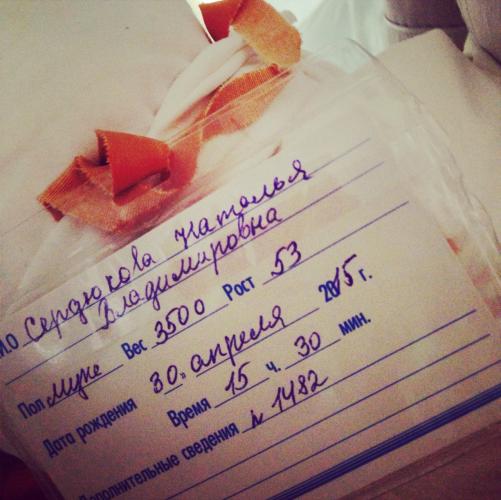 ИО Сердюкова Наталья
Владимировна
Пол муж Вес 3500 Рост 53
Дата рождения 30 апреля 2015 г.
Время 15 ч. 30 мин.
Дополнительные сведения № 1482